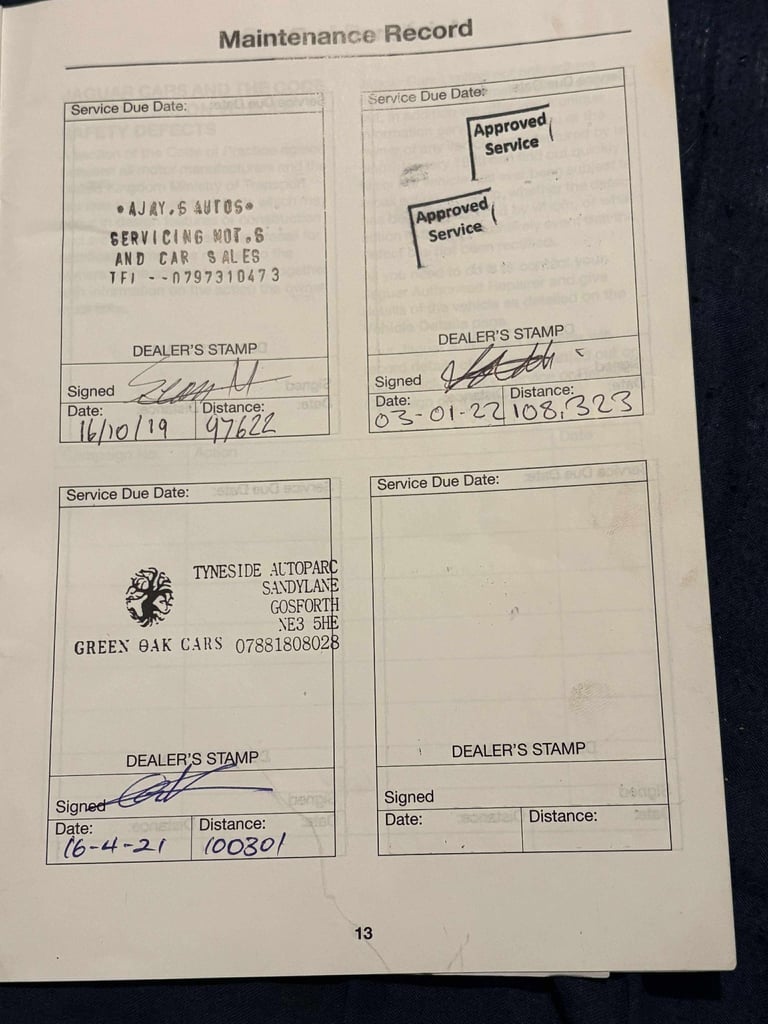 Maintenance Record
Service Due Date:
•AJAY,S AUTOS•
SERVICING MOT,S
AND CAR SALES
TEL --0797310473
DEALER'S STAMP
Signed
Date:
Distance:
16/10/19
97622
Service Due Date:
Approved
Service
Approved
Service
DEALER'S STAMP
Signed
Date:
Distance:
03-01-22
108,323
Service Due Date:
TYNESIDE AUTOPARC
SANDYLANE
GOSFORTH
NE3 5HE
GREEN OAK CARS 07881808028
DEALER'S STAMP
Signed
Date:
Distance:
16-4-21
100301
Service Due Date:
DEALER'S STAMP
Signed
Date:
Distance:
13